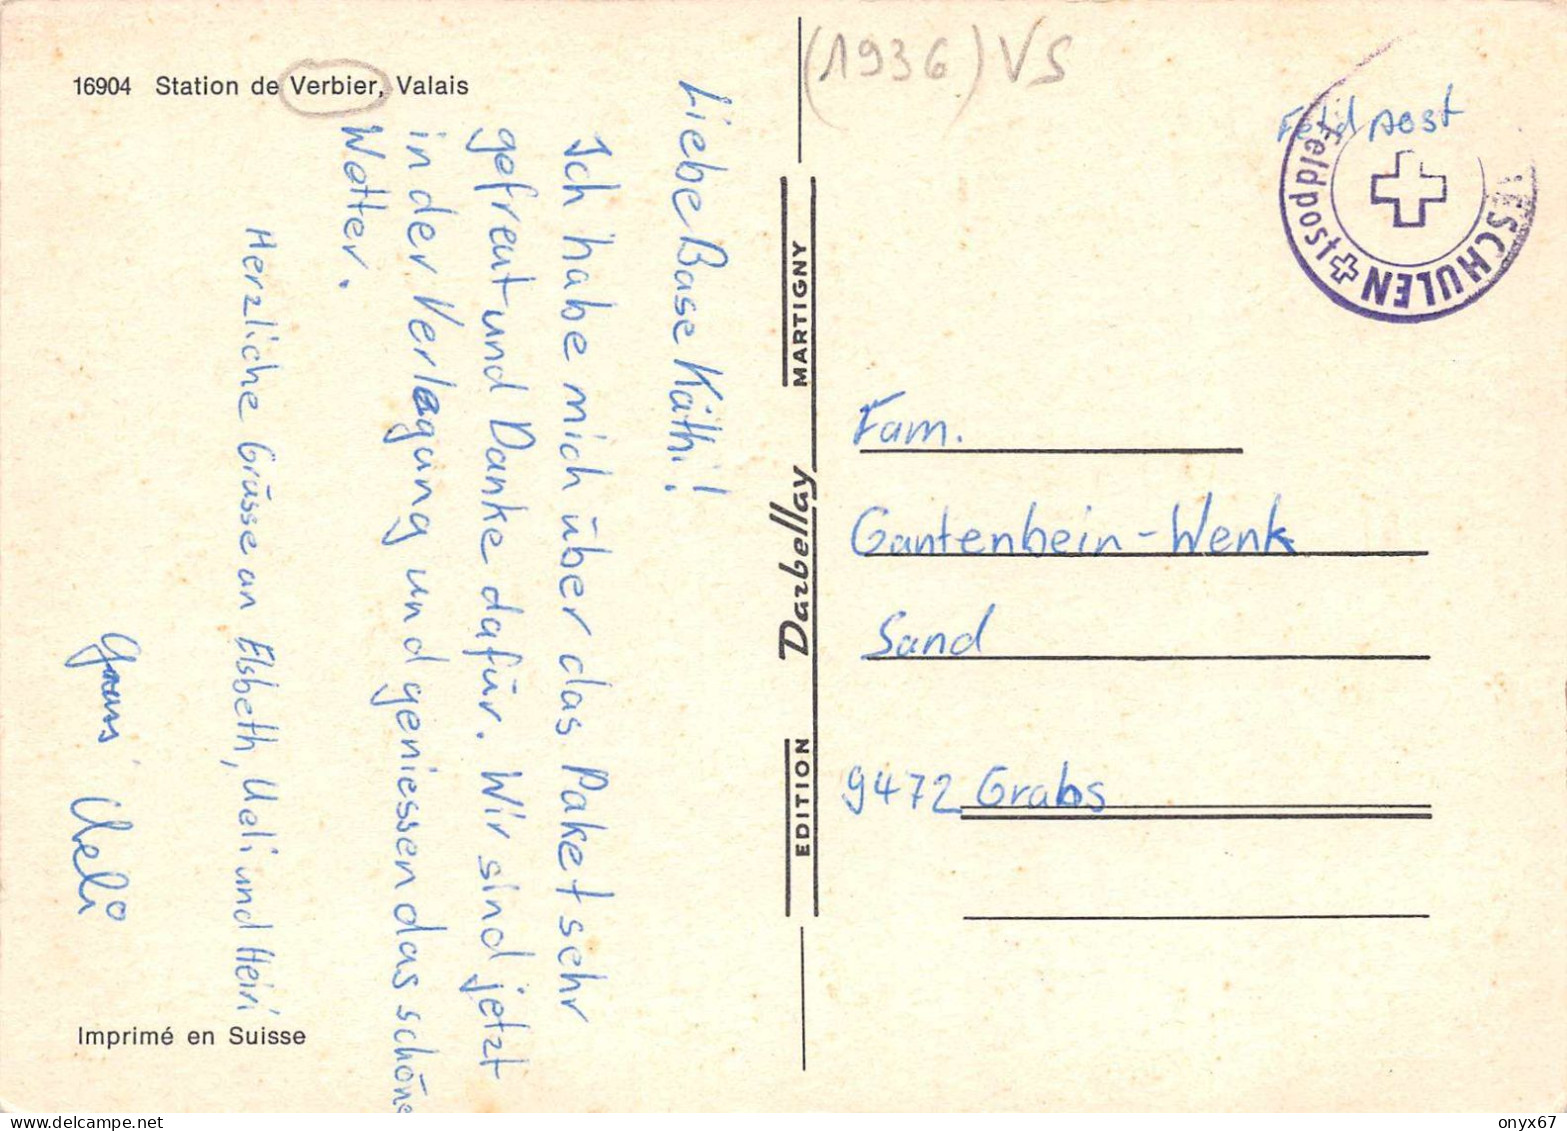 16904 Station de Verbier, Valais
(1936) VS
Liebe Base Käthi!
Ich habe mich über das Paket sehr
gefreut und Danke dafür. Wir sind jetzt
in der Verlegung und geniessen das schöne
Wetter.
Herzliche Grüsse an Elsbeth, Ueli und Heiri
Ueli
Imprimé en Suisse
EDITION Darbellay MARTIGNY
Feldpost
Feldpost
SCHULEN
Fam.
Gantenbein-Wenk
Sand
9472 Grabs
delcampe.net
onyx67